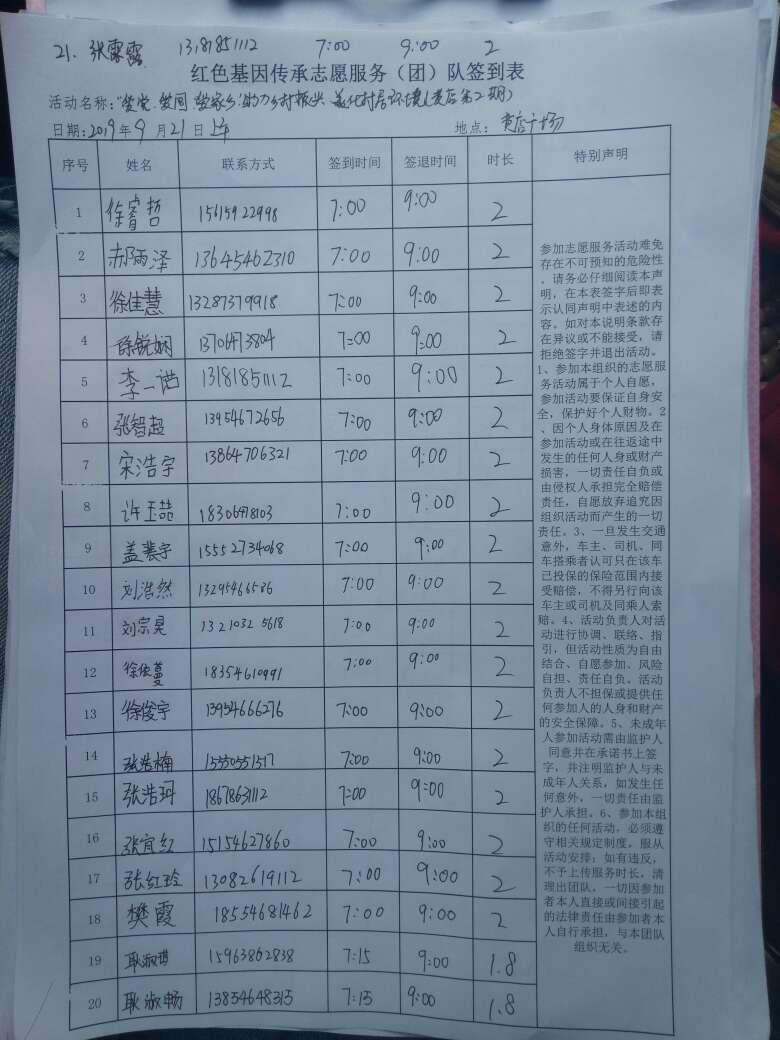 21. 张露露 13181851112 7:00 9:00 2
红色基因传承志愿服务（团）队签到表
活动名称：“爱党、爱国、爱家乡”助力乡村振兴、美化村居环境（黄店第二期）
日期：2019年9月21日上午 地点：黄店广场
序号 姓名 联系方式 签到时间 签退时间 时长 特别声明
1 徐睿哲 15615922998 7:00 9:00 2
2 郝炳泽 13645462310 7:00 9:00 2
3 徐佳慧 13287379918 7:00 9:00 2
4 徐锐娴 13706473804 7:00 9:00 2
5 李一诺 13181851112 7:00 9:00 2
6 张智超 13954672656 7:00 9:00 2
7 宋浩宇 13864706321 7:00 9:00 2
8 许玉喆 18306478103 7:00 9:00 2
9 盖裴宇 15552734068 7:00 9:00 2
10 刘浩然 13295466586 7:00 9:00 2
11 刘宗昊 13210325618 7:00 9:00 2
12 徐依蔓 18354610991 7:00 9:00 2
13 徐俊宇 13954666276 7:00 9:00 2
14 张浩楠 15550551517 7:00 9:00 2
15 张浩珂 18678631112 7:00 9:00 2
16 张宜红 15154627860 7:00 9:00 2
17 张红玲 13082619112 7:00 9:00 2
18 樊霞 18554681462 7:00 9:00 2
19 耿淑 15963862838 7:15 9:00 1.8
20 耿淑畅 13854648315 7:15 9:00 1.8
参加志愿服务活动难免
存在不可预知的危险性
，请务必仔细阅读本声
明，在本表签字后即表
示认同声明中表述的内
容。如对本说明条款存
在异议或不能接受，请
拒绝签字并退出活动。
1、参加本组织的志愿服
务活动属于个人自愿，
参加活动要保证自身安
全，保护好个人财物。2
、因个人身体原因及在
参加活动或在往返途中
发生的任何人身或财产
损害，一切责任自负或
由侵权人承担完全赔偿
责任，自愿放弃追究因
组织活动而产生的一切
责任。3、一旦发生交通
意外，车主、司机、同
车搭乘者认可只在该车
已投保的保险范围内接
受赔偿，不得另行向该
车主或司机及同乘人索
赔。4、活动负责人对活
动进行协调、联络、指
引，但活动性质为自由
结合、自愿参加、风险
自担、责任自负、活动
负责人不担保或提供任
何参加人的人身和财产
的安全保障。5、未成年
人参加活动需由监护人
同意并在承诺书上签
字，并注明监护人与未
成年人关系，如发生任
何意外，一切责任由监
护人承担。6、参加本组
织的任何活动，必须遵
守相关规定制度，服从
活动安排；如有违反，
不予上传服务时长，清
理出团队。一切因参加
者本人直接或间接引起
的法律责任由参加者本
人自行承担，与本团队
组织无关。